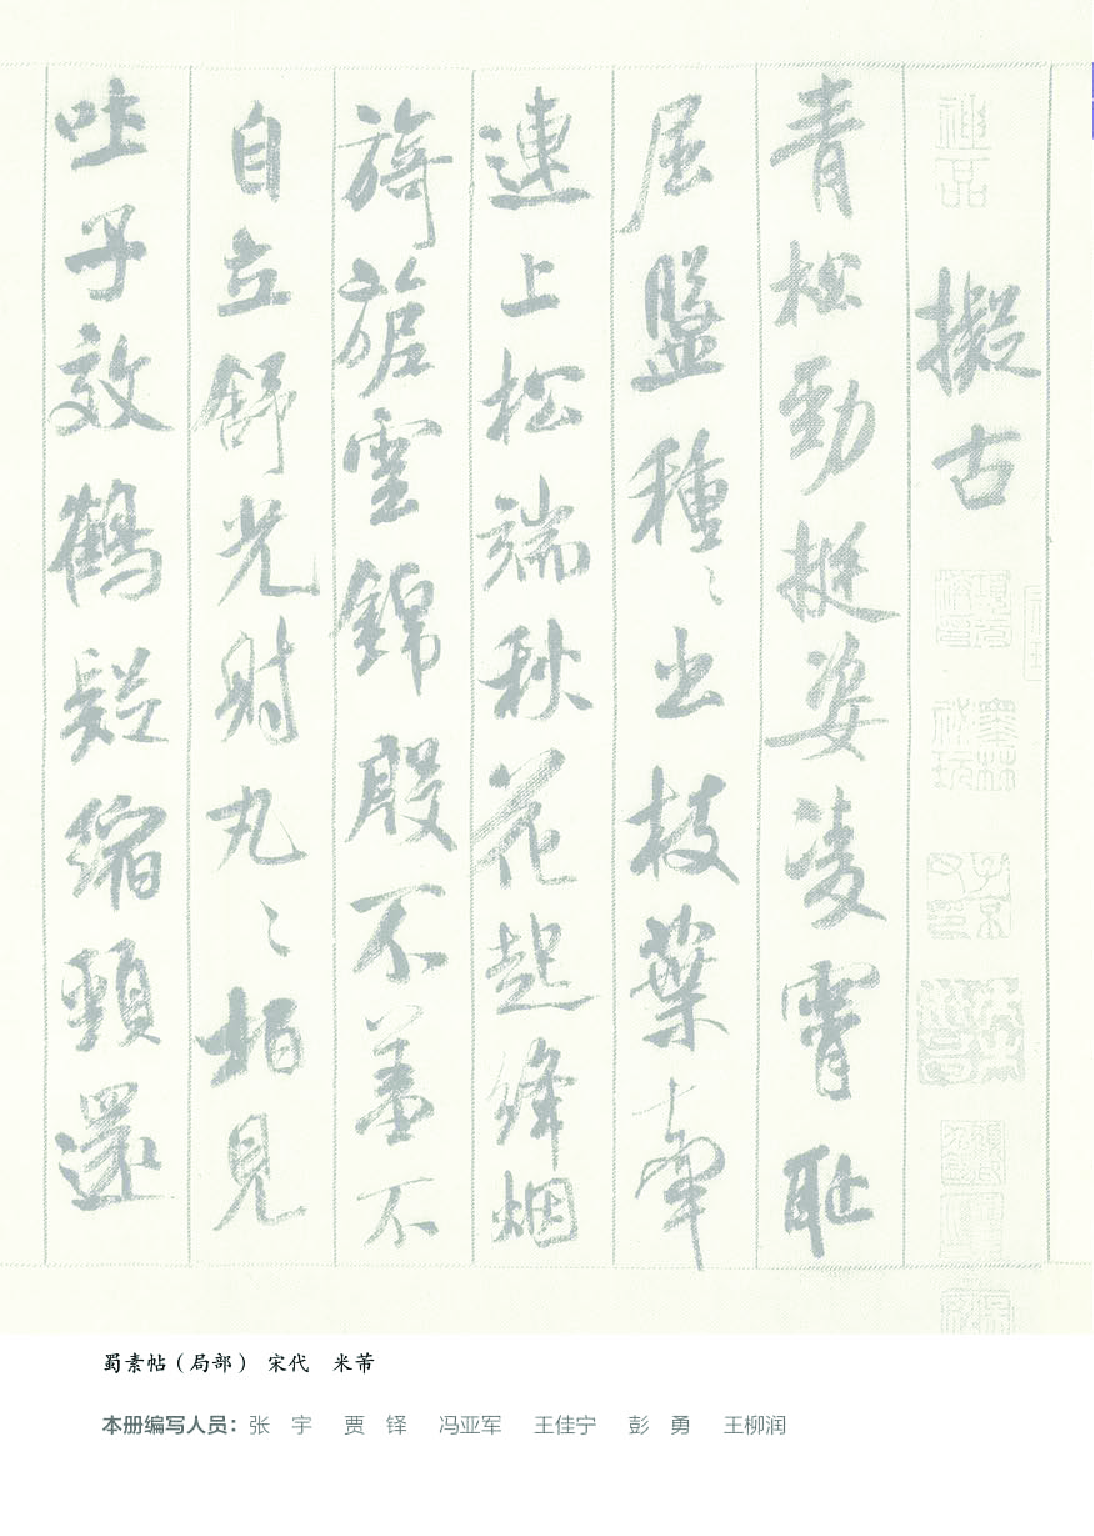 擬古
青松勁挺姿凌霄耻
屈盤種〻出枝葉牽
連上松端秋花起絳烟
旖旎雲錦殷不羞不
自立舒光射丸〻柏見
吐子效鶴疑縮頸還
蜀素帖（局部） 宋代 米芾
本册编写人员：张 宇 贾 铎 冯亚军 王佳宁 彭 勇 王柳润